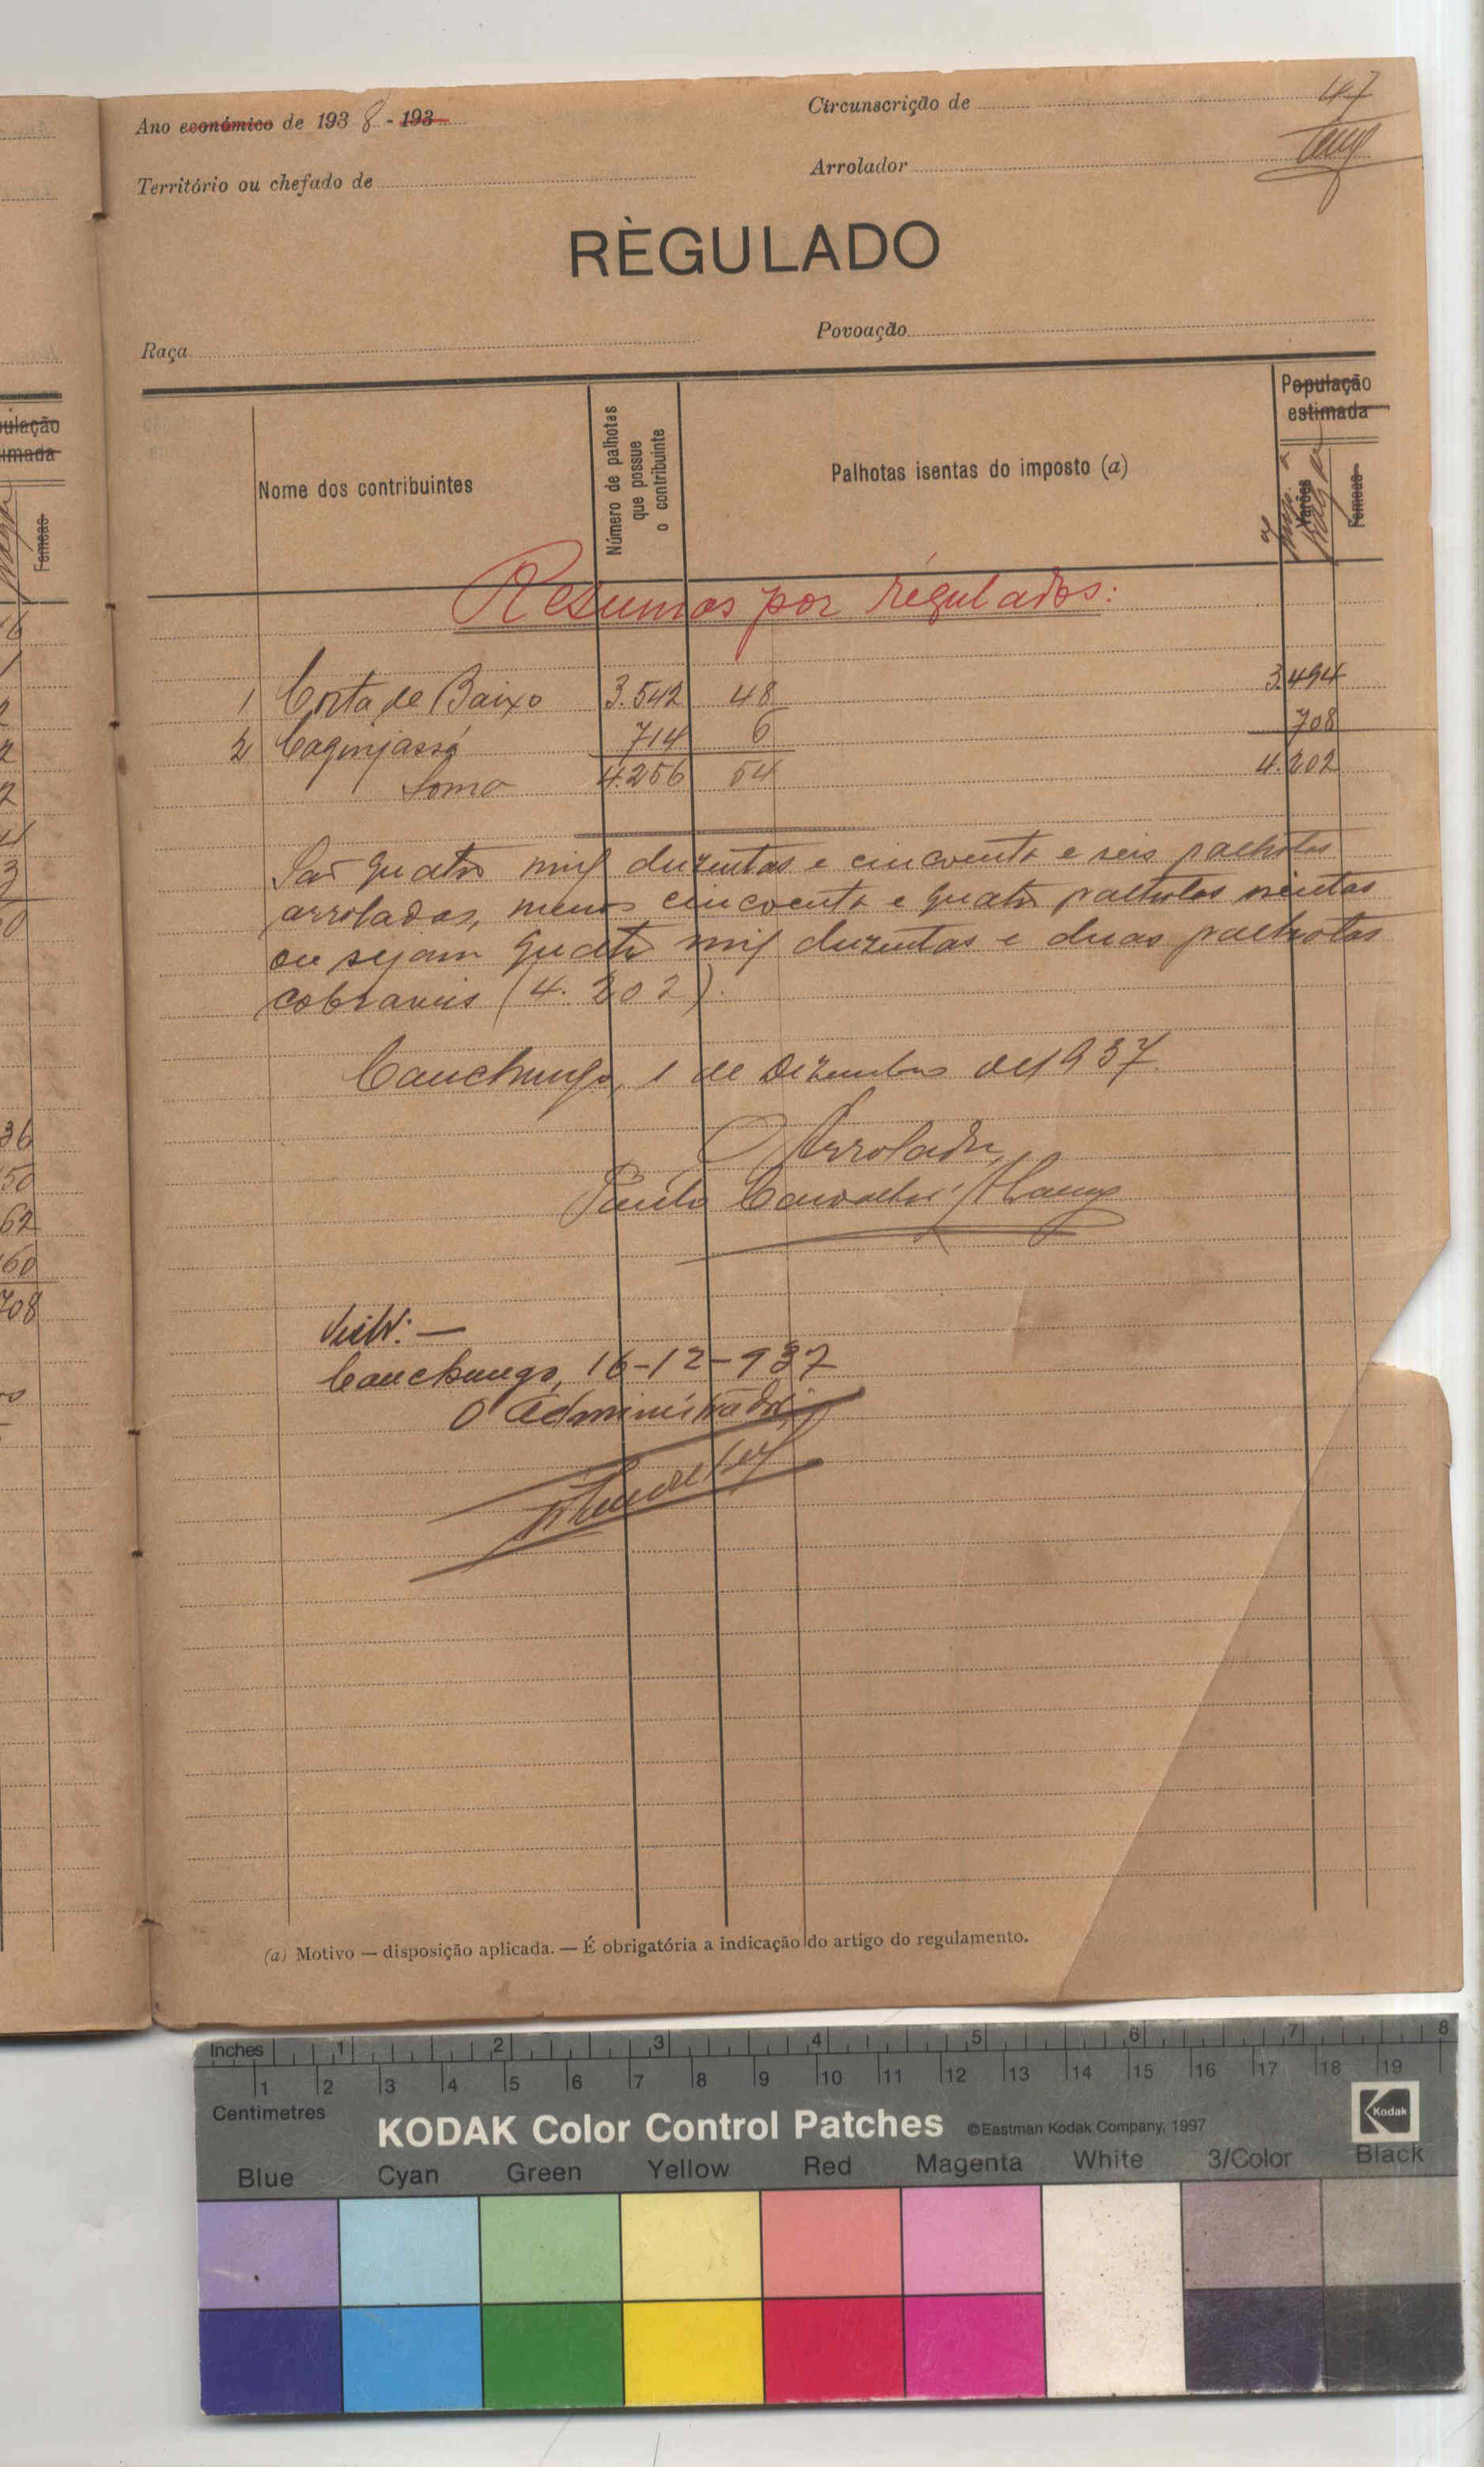 47
Ano económico de 1938-193
Circunscrição de
Território ou chefado de
Arrolador
RÈGULADO
Raça
Povoação
Nome dos contribuintes
Número de palhotas
que possue
o contribuinte
Palhotas isentas do imposto (a)
População
estimada
Varões
Femeas
ulação
imada
Femeas
Resumos por régulados:
1 Costa de Baixo 3.542 48 3.494
2 Caginjassá 714 6 708
Soma 4.256 54 4.202
São quatro mil duzentas e cincoenta e seis palhotas
arroladas, menos cincoenta e quatro palhotas isentas
ou sejam quatro mil duzentas e duas palhotas
cobraveis (4.202).
Canchungo, 1 de Dezembro de 1937.
O Arrolador,
Paulo Carvalho
Visto: —
Canchungo, 16-12-937
O Administrador,
36
50
62
60
708
(a) Motivo — disposição aplicada. — É obrigatória a indicação do artigo do regulamento.
Inches 1 2 3 4 5 6 7 8
1 2 3 4 5 6 7 8 9 10 11 12 13 14 15 16 17 18 19
Centimetres
KODAK Color Control Patches ©Eastman Kodak Company, 1997 Kodak
Blue Cyan Green Yellow Red Magenta White 3/Color Black